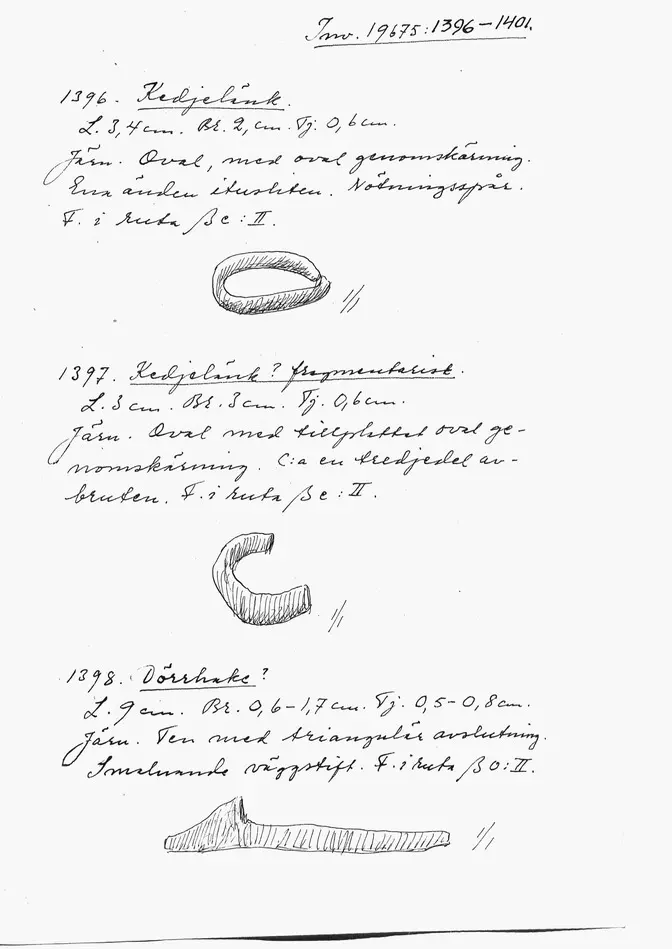 Inv. 19675:1396-1401.
1396. Kedjelänk.
L. 3,4 cm. Br. 2, cm. Tj. 0,6 cm.
Järn. Oval, med oval genomskärning.
Ena änden itusliten. Nötningsspår.
F. i ruta ßc:II.
1/1
1397. Kedjelänk? fragmentarisk.
L. 3 cm. Br. 3 cm. Tj. 0,6 cm.
Järn. Oval med tillplattat oval ge-
nomskärning. C:a en tredjedel av-
bruten. F. i ruta ßc:II.
1/1
1398. Dörrhake?
L. 9 cm. Br. 0,6-1,7 cm. Tj. 0,5-0,8 cm.
Järn. Ten med triangulär avslutning.
Smalnande väggstift. F. i ruta ßo:II.
1/1